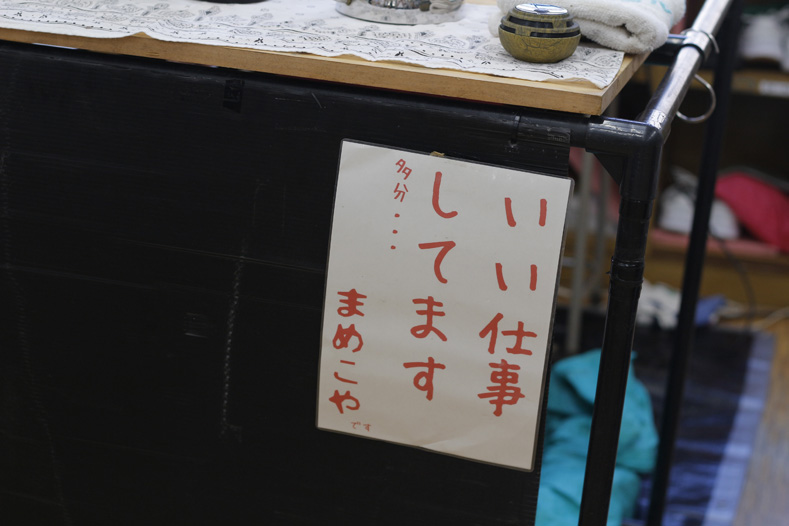 いい仕事
してます
多分・・・
まめこや
です